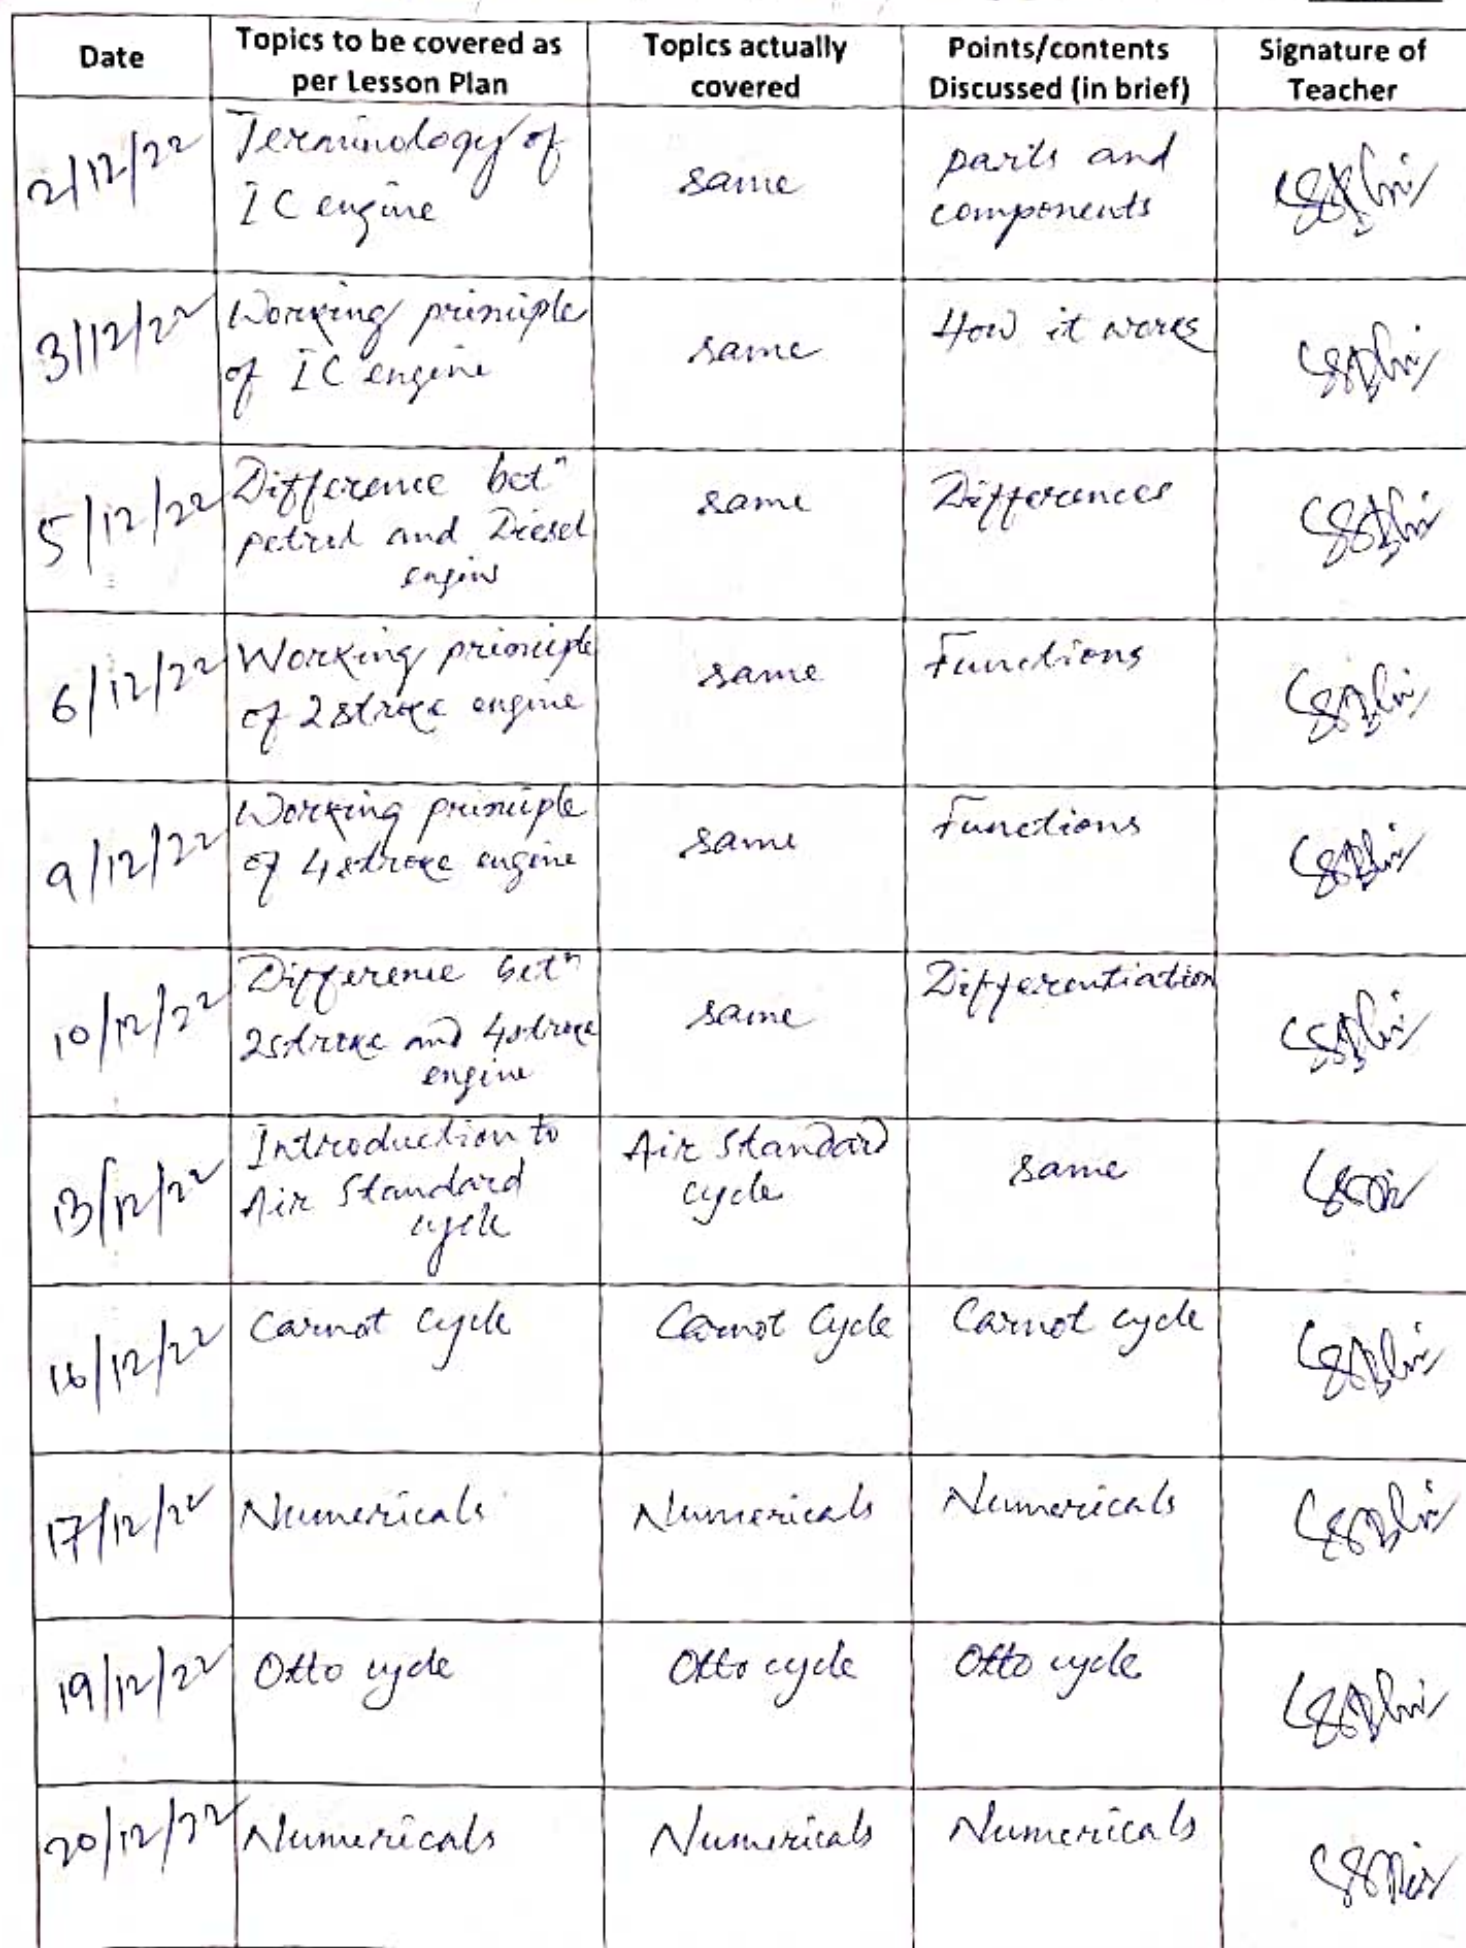 Date
Topics to be covered as
per Lesson Plan
Topics actually
covered
Points/contents
Discussed (in brief)
Signature of
Teacher
2/12/22
Terminology of
IC engine
same
parts and
components
3/12/22
Working principle
of IC engine
same
How it works
5/12/22
Difference betⁿ
petrol and Diesel
engine
same
Differences
6/12/22
Working principle
of 2 stroke engine
same
Functions
9/12/22
Working principle
of 4 stroke engine
same
Functions
10/12/22
Difference betⁿ
2 stroke and 4 stroke
engine
same
Differentiation
13/12/22
Introduction to
Air Standard
cycle
Air Standard
cycle
same
16/12/22
Carnot Cycle
Carnot Cycle
Carnot cycle
17/12/22
Numericals
Numericals
Numericals
19/12/22
Otto cycle
Otto cycle
Otto cycle
20/12/22
Numericals
Numericals
Numericals